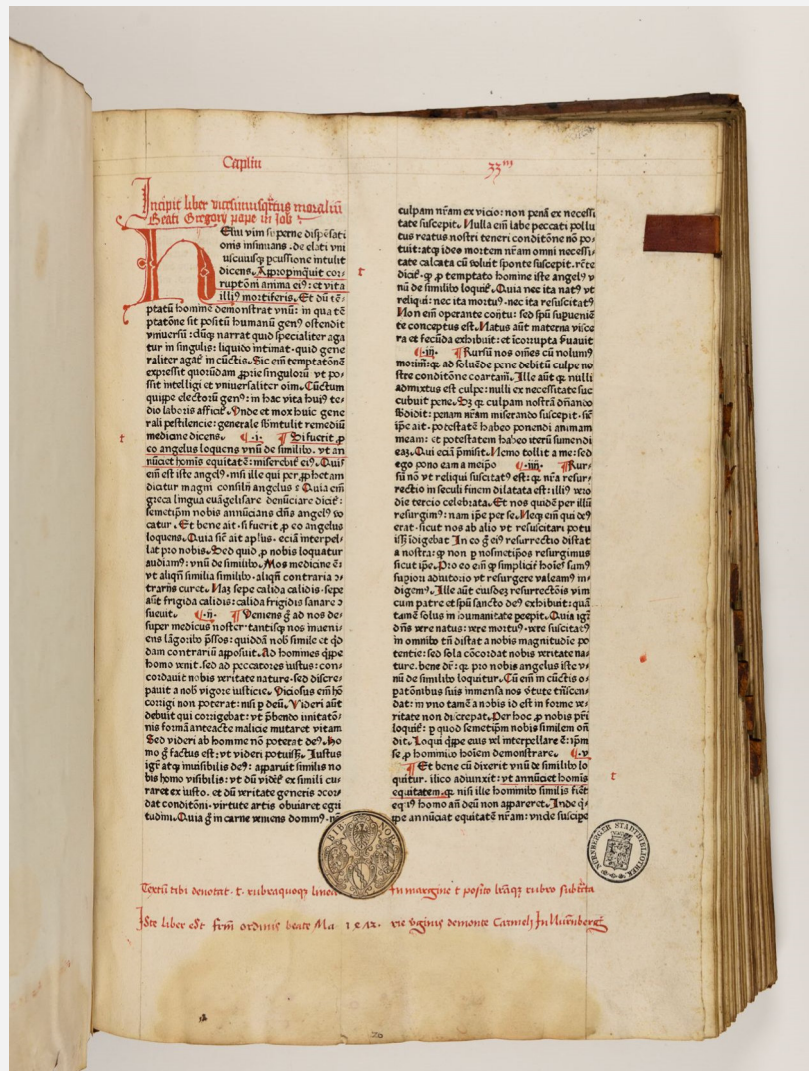 Caplm̄
33ᵐ
Incipit liber vicesimusqr̄tus moraliū
Beati Gregorij pape in Job
HEliu vim superne dispēsati
onis insinuans . de elati vni
uscuiusq̨ pcussione intulit
dicens. Appropinquit cor-
ruptōni anima ei9: et vita
illi9 mortiferis. Et dū tē-
ptatū hominē demonstrat vnū: in qua tē
ptatōne sit positū humanū gen9 ostendit
vniuersū: dūq̨ narrat quid specialiter aga
tur in singulis: liquido intimat . quid gene
raliter agat̄ in cūctis. Sic em̄ temptatōnē
expressit quorūdam ꝓprie singuloꝝ vt po-
ssit intelligi et vniuersaliter oīm. Cūctum
quippe electoꝝ gen9: in hac vita hui9 te-
dio laboris afficit̄. Vnde et mox huic gene
rali pestilencie: generale sb̄mtulit remediū
medicine dicens. ¶ .i. ¶ Si fuerit ꝓ
eo angelus loquens vnū de similib9. vt an
nūciet homīs equitatē: miserebit̄ ei9. Quis
em̄ est iste angel9. nisi ille qui per ꝓphetam
dicitur magni consilij angelus : Quia em̄
greca lingua euāgelisare denūciare dicit̄:
semetip̄m nobis annūcians dn̄s angel9 vo
catur. Et bene ait . si fuerit ꝓ eo angelus
loquens. Quia sic̄ ait ap̄lus . eciā interpel-
lat pro nobis. Sed quid ꝓ nobis loquatur
audiam9: vnū de similib9. Mos medicine ē:
vt aliqn̄ similia similib9 . aliqn̄ contraria ꝯ-
trarijs curet. Nā sepe calida calidis . sepe
aūt frigida calidis: calida frigidis sanare ꝯ
sueuit. ¶ .ij. ¶ Veniens g̊ ad nos de-
super medicus noster . tantisq̨ nos inueni-
ens lāgorib9 p̄ssos: quiddā nob̄ simile et qd̄
dam contrariū apposuit. Ad homines q̄ppe
homo venit . sed ad peccatores iustus: con-
cordauit nobis veritate nature . sed discre-
pauit a nob̄ vigore iusticie. Viciosus em̄ hō
corrigi non poterat: nisi ꝑ deū. Videri aūt
debuit qui corrigebat: vt p̄bendo imitatō-
nis formā anteacte malicie mutaret vitam
Sed videri ab homine nō poterat de9. Ho
mo g̊ factus est: vt videri potuiss̄. Iustus
igr̄ atq̨ inuisibilis de9: apparuit similis no
bis homo visibilis: vt dū videt̄ ex simili cu-
raret ex iusto . et dū veritate generis ꝯcor-
dat conditōni . virtute artis obuiaret egri
tudini. Quia g̊ in carne veniens domin9 . nō
culpam nr̄am ex vicio: non penā ex necessi
tate suscepit. Nulla em̄ labe peccati pollu
tus reatus nostri teneri conditōne nō po-
tuit: atq̨ ideo mortem nr̄am omni necessi-
tate calcata cū voluit sponte suscepit . recte
dicit̄ . q ꝓ temptato homine iste angel9 v
nū de similib9 loquit̄. Quia nec ita nat9 vt
reliqui: nec ita mortu9 . nec ita resuscitat9
Non em̄ operante coitu: sed spū supueniē
te conceptus est. Natus aūt materna visce
ra et fecūda exhibuit: et īcorrupta ẜuauit
¶ .iij. ¶ Rursū nos om̄es cū nolum9
morim̄: q̨ ad soluēde pene debitū culpe no
stre conditōne coartam̄. Ille aūt q̨ nulli
admixtus est culpe: nulli ex necessitate suc
cubuit pene. Sz q̨ culpam nostrā dn̄ando
sb̄didit: penam nr̄am miserando suscepit . sic̄
ip̄e ait . potestatē habeo ponendi animam
meam: et potestatem habeo iterū sumendi
eaz. Qui eciā p̄misit. Nemo tollit a me: sed
ego pono eam a meip̄o ¶ .iiij. ¶ Rur-
sū nō vt reliqui suscitat9 est: q̨ nr̄a resur-
rectio in seculi finem dilatata est: illi9 vero
die tercio celebrata. Et nos quidē per illū
resurgim9: nam ip̄e per se. Neq̨ em̄ qui de9
erat . sicut nos ab alio vt resuscitari potu
iss̄ īdigebat In eo g̊ ei9 resurrectio distat
a nostra: q non ꝑ nosmetip̄os resurgimus
sicut ip̄e. Pro eo em̄ q simplicit̄ hoīes sum9
supiori adiutorio vt resurgere valeam9 in-
digem9. Ille aūt eiusdez resurrectōis vim
cum patre et spū sancto de9 exhibuit: quā
tamē solus in humanitate pcepit. Quia igr̄
dn̄s vere natus: vere mortu9 . vere suscitat9
in omnib9 tn̄ distat a nobis magnitudīe po
tentie: sed sola cōcordat nobis veritate na-
ture. bene dr̄: q̨ pro nobis angelus iste v-
nū de similib9 loquitur. Cū em̄ in cūctis o-
patōnibus suis immensa nos v̄tute trāscen-
dat: in vno tamē a nobis id est in forme ve-
ritate non discrepat. Per hoc ꝓ nobis pr̄i
loquit̄: ꝑ quod semetip̄m nobis similem on̄
dit. Loqui q̄ppe eius vel interpellare ē: ip̄m
se ꝓ hominib9 hoīem demonstrare. ¶ .v
¶ Et bene cū dixerit vnū de similib9 lo
quitur . ilico adiunxit: vt annūciet homīs
equitatem. q̨ nisi ille hominib9 similis fiēt
equ9 homo an̄ deū non appareret. Inde q̄-
ppe annūciat equitatē nr̄am: vnde suscipe
t
t
t
BIB NOR
NÜRNBERGER STADTBIBLIOTHEK
Textū tibi denotat . t . rubraquoq̨ linea In margine t posito lr̄aq̨ rubro subtr̄ta
Iste liber est frm̄ ordinis beate Ma rie v̄ginis de monte Carmeli In Nurnberg
20